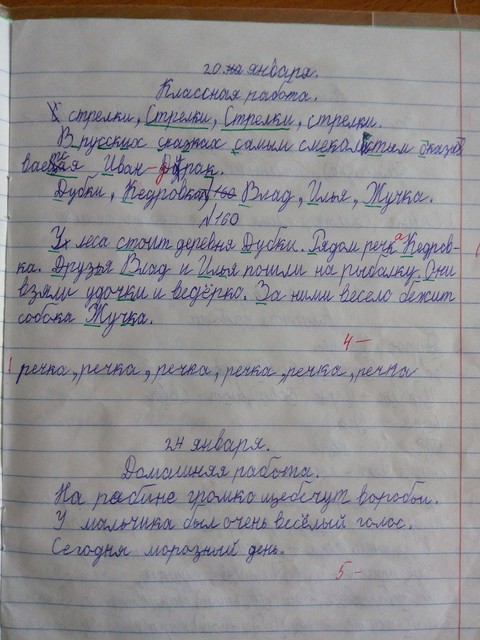 20 января.
Классная работа.
стрелки, Стрелки, Стрелки, стрелки.
В русских сказках самым смекалистым оказы
вается Иван-дурак.
Дубки, Кедровка, Влад, Илья, Жучка.
№160
У леса стоит деревня Дубки. Рядом речка Кедров-
ка. Друзья Влад и Илья пошли на рыбалку. Они
взяли удочки и ведёрко. За ними весело бежит
собака Жучка.
4-
речка, речка, речка, речка, речка, речка
24 января.
Домашняя работа.
На рябине громко щебечут воробьи.
У мальчика был очень весёлый голос.
Сегодня морозный день.
5-